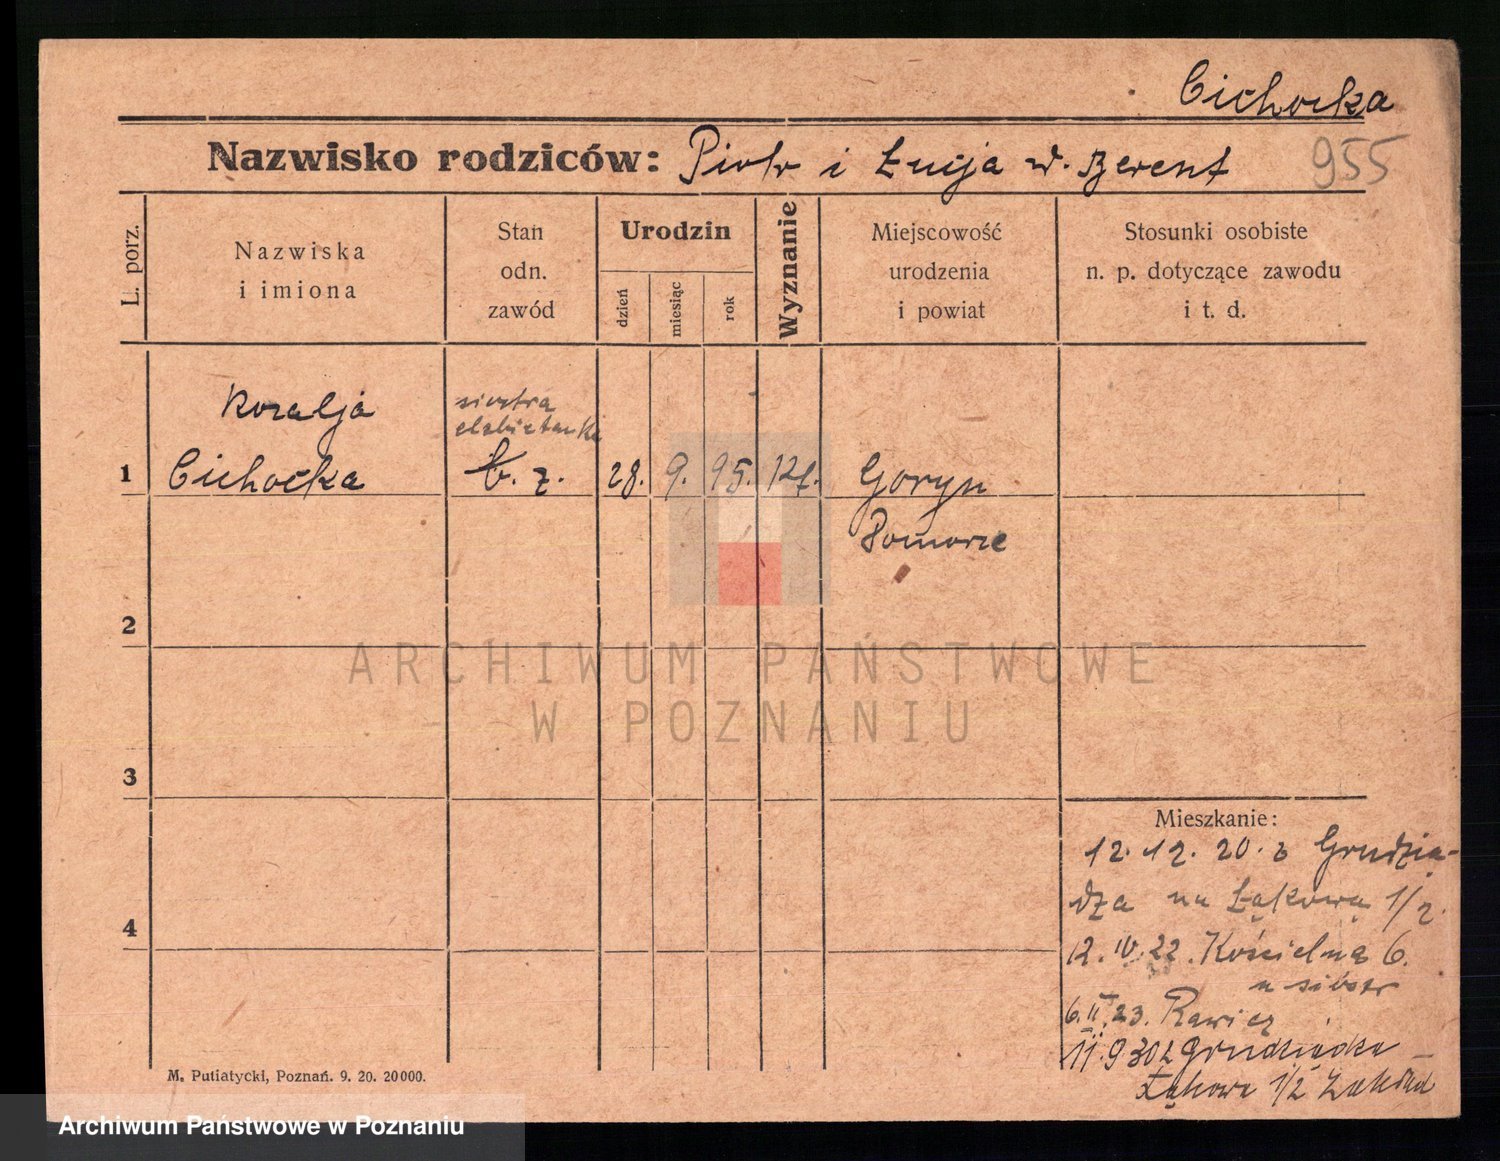 Cichocka
Nazwisko rodziców: Piotr i Łucja d. Berent
955
L. porz.
Nazwiska
i imiona
Stan
odn.
zawód
Urodzin
dzień
miesiąc
rok
Wyznanie
Miejscowość
urodzenia
i powiat
Stosunki osobiste
n. p. dotyczące zawodu
i t. d.
Rozalja
siostra
elżbietanka
1 Cichocka z. 28. 9. 95. Goryn
Pomorze
2
ARCHIWUM PAŃSTWOWE
W POZNANIU
3
Mieszkanie:
12. 12. 20. z Grudzią-
dza na Łąkową 1/2.
4
12. IV. 22. Kościelną 6.
u sióstr
6. II. 23. Rawicz
11. 9 30 z Grudziądza
Łąkowa 1/2 Zakład
M. Putiatycki, Poznań. 9. 20. 20000.
Archiwum Państwowe w Poznaniu